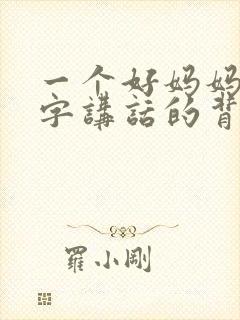 一个好妈妈
字講話的背
羅小剛